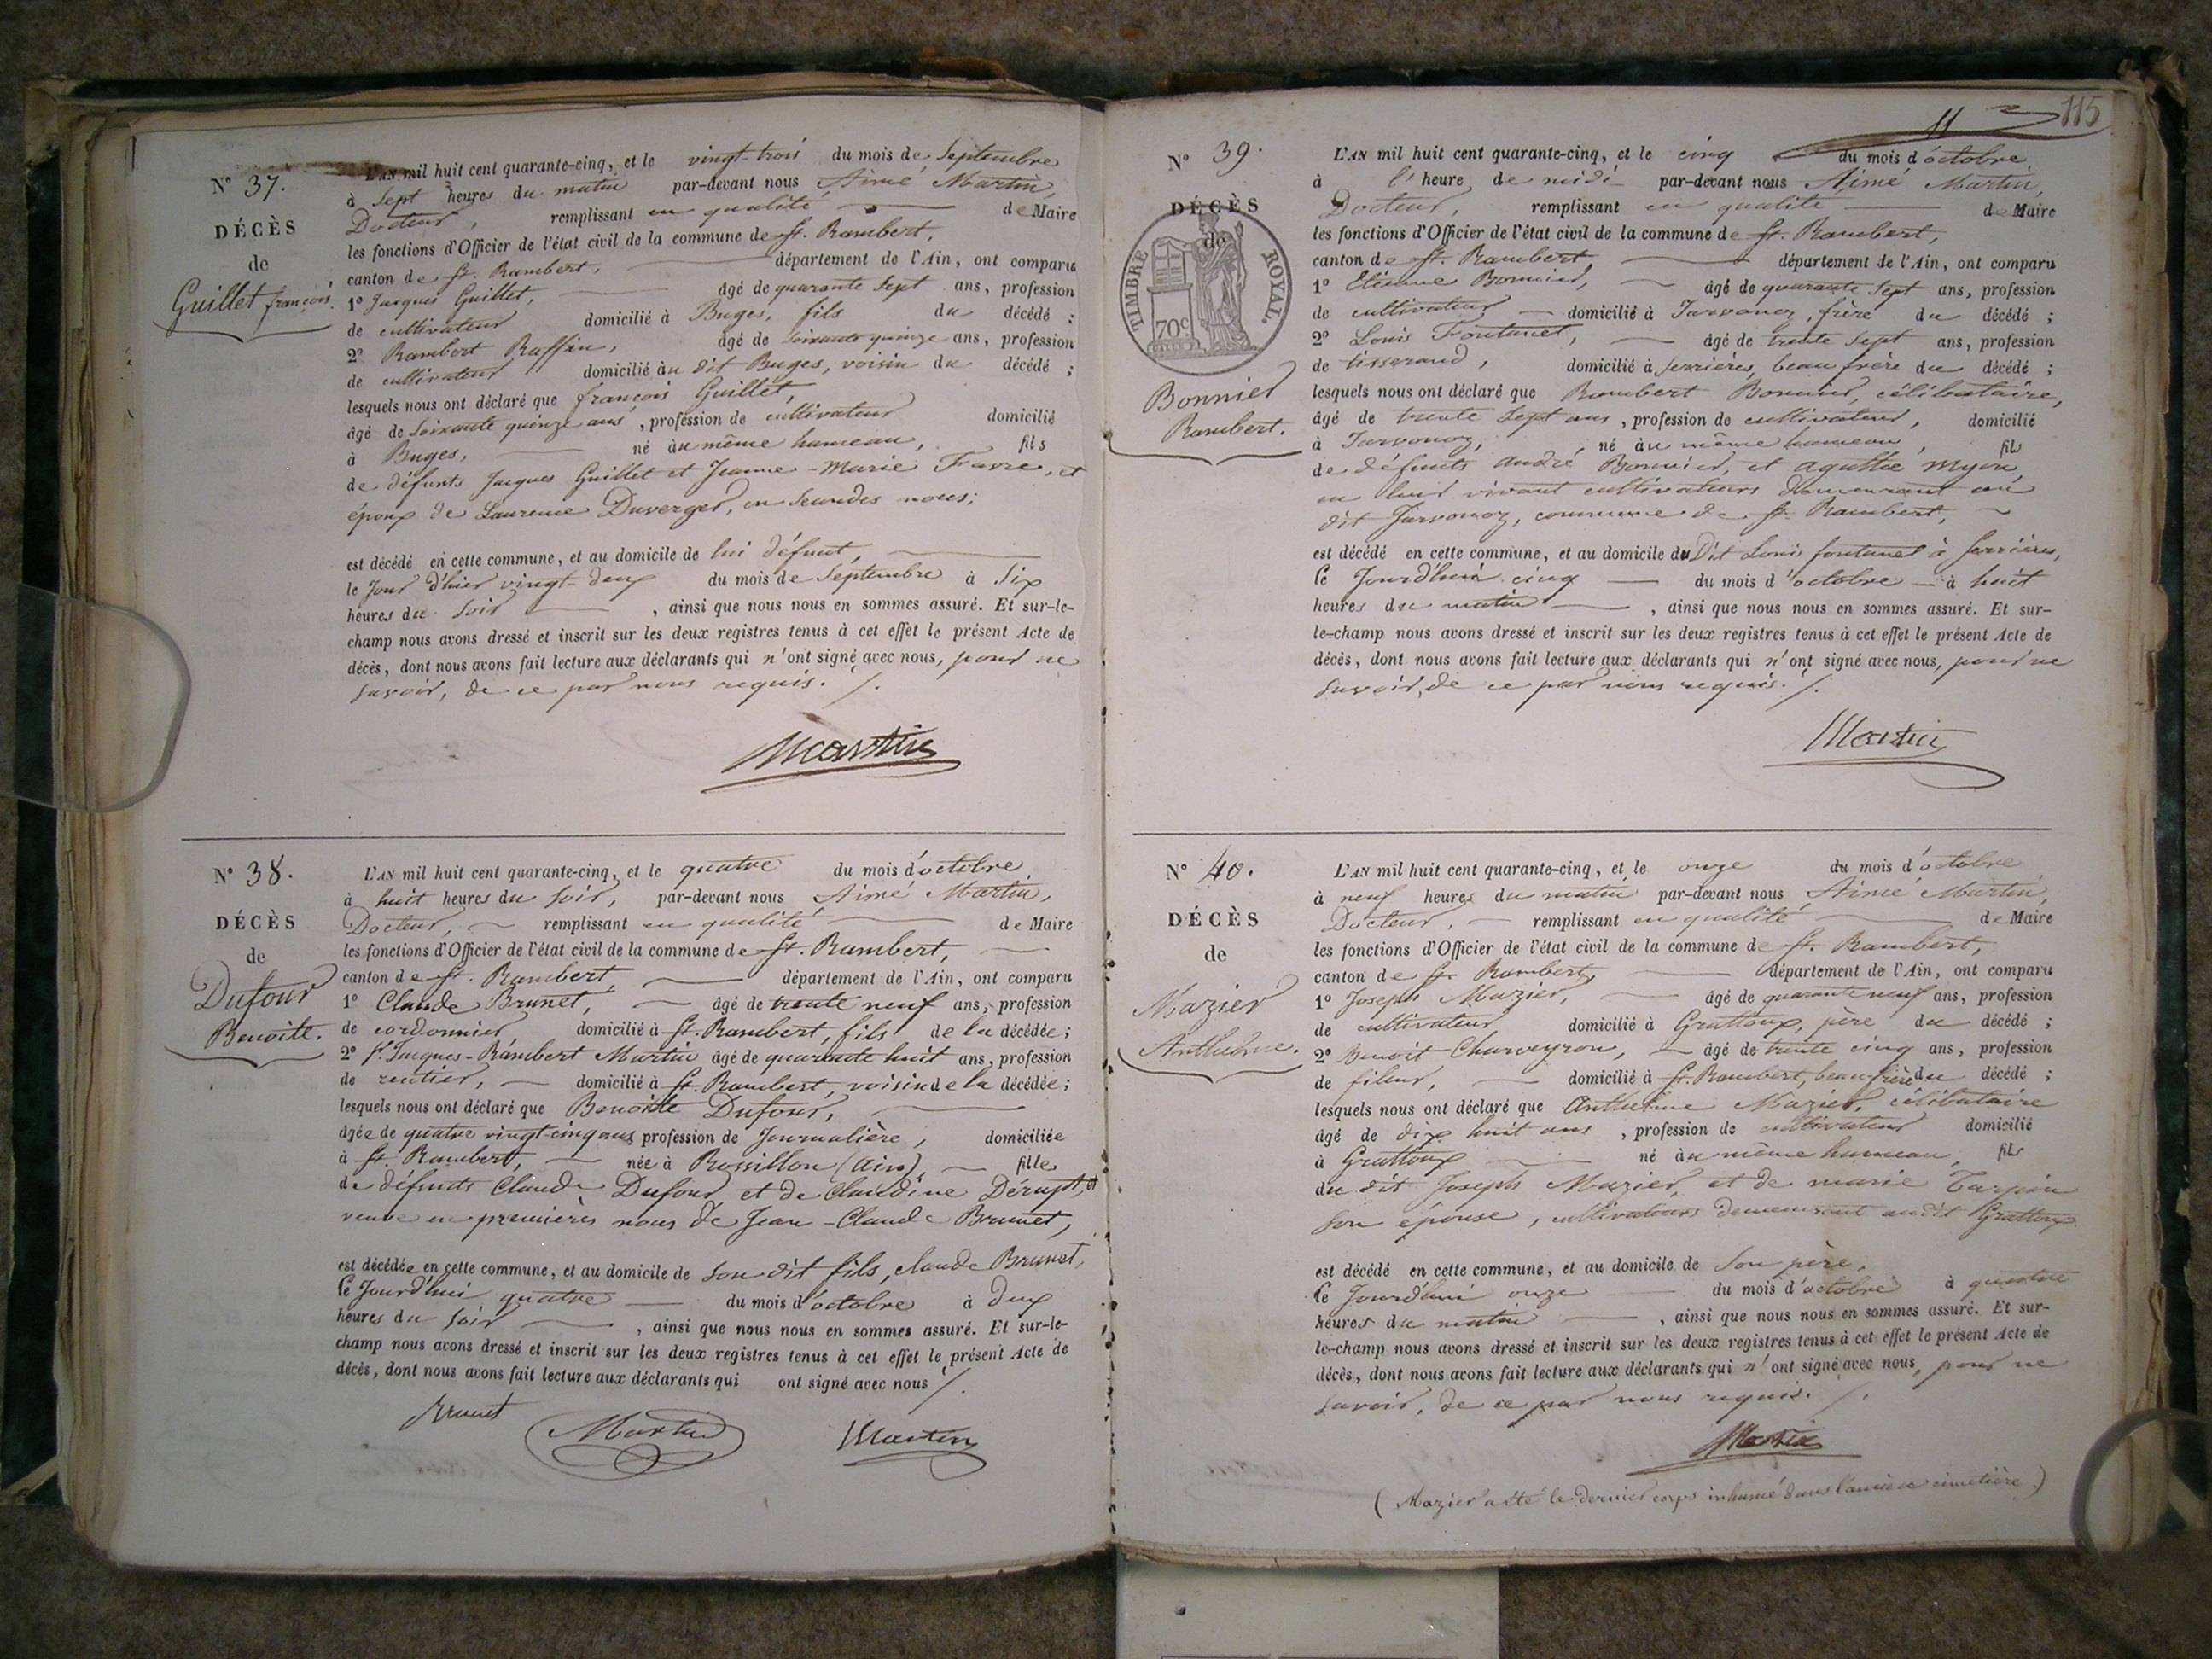 N° 37.
DÉCÈS
de
Guillet françois.
L'AN mil huit cent quarante-cinq, et le vingt-trois du mois de Septembre
à Sept heures du matin par-devant nous Aimé Martin,
Docteur, remplissant en qualité de Maire
les fonctions d'Officier de l'état civil de la commune de St. Rambert,
canton de St. Rambert, département de l'Ain, ont comparu
1° Jacques Guillet, âgé de quarante Sept ans, profession
de cultivateur domicilié à Buges, fils du décédé ;
2° Rambert Raffin, âgé de soixante quinze ans, profession
de cultivateur domicilié au dit Buges, voisin du décédé ;
lesquels nous ont déclaré que françois Guillet,
âgé de Soixante quinze ans, profession de cultivateur domicilié
à Buges, né au même hameau, fils
de défunts Jacques Guillet et Jeanne-Marie Favre, et
époux de Laurence Duverger, en Secondes noces;
est décédé en cette commune, et au domicile de lui défunt,
le Jour d'hier vingt-deux du mois de Septembre à Six
heures du Soir, ainsi que nous nous en sommes assuré. Et sur-le-
champ nous avons dressé et inscrit sur les deux registres tenus à cet effet le présent Acte de
décès, dont nous avons fait lecture aux déclarants qui n'ont signé avec nous, pour ne
savoir, de ce par nous requis. /.
Martin
N° 38.
DÉCÈS
de
Dufour
Benoite.
L'AN mil huit cent quarante-cinq, et le quatre du mois d'octobre
à huit heures du Soir, par-devant nous Aimé Martin,
Docteur, remplissant en qualité de Maire
les fonctions d'Officier de l'état civil de la commune de St. Rambert,
canton de St. Rambert, département de l'Ain, ont comparu
1° Claude Brunet, âgé de trente neuf ans, profession
de cordonnier domicilié à St. Rambert, fils de la décédée;
2° Jacques-Rambert Martin âgé de quarante huit ans, profession
de rentier, domicilié à St. Rambert, voisin de la décédée;
lesquels nous ont déclaré que Benoite Dufour,
âgée de quatre vingt-cinq ans, profession de Journalière, domiciliée
à St. Rambert, née à Rossillon (Ain), fille
de défunts Claude Dufour et de Claudine Dérupt, et
veuve en premières noces de Jean-Claude Brunet,
est décédée en cette commune, et au domicile de son dit fils, claude Brunet,
le Jourd'hui quatre du mois d'octobre à deux
heures du Soir, ainsi que nous nous en sommes assuré. Et sur-le-
champ nous avons dressé et inscrit sur les deux registres tenus à cet effet le présent Acte de
décès, dont nous avons fait lecture aux déclarants qui ont signé avec nous /.
Brunet Martin Martin
115
11
N° 39.
DÉCÈS
de
TIMBRE ROYAL.
70c
Bonnier
Rambert.
L'AN mil huit cent quarante-cinq, et le cinq du mois d'octobre
à l'heure de midi par-devant nous Aimé Martin,
Docteur, remplissant en qualité de Maire
les fonctions d'Officier de l'état civil de la commune de St. Rambert,
canton de St. Rambert, département de l'Ain, ont comparu
1° Etienne Bonnier, âgé de quarante Sept ans, profession
de cultivateur domicilié à Javornoz, frère du décédé ;
2° Louis Fontanet, âgé de trente Sept ans, profession
de tisserand, domicilié à Serrières, beau frère du décédé ;
lesquels nous ont déclaré que Rambert Bonnier, célibataire,
âgé de trente Sept ans, profession de cultivateur, domicilié
à Javornoz, né au même hameau, fils
de défunts André Bonnier, et agathe Myon,
en leur vivant cultivateurs demeurant au
dit Javornoz, commune de St. Rambert,
est décédé en cette commune, et au domicile du Dit Louis fontanet à Serrières,
le Jourd'hui cinq du mois d'octobre à huit
heures du matin, ainsi que nous nous en sommes assuré. Et sur-
le-champ nous avons dressé et inscrit sur les deux registres tenus à cet effet le présent Acte de
décès, dont nous avons fait lecture aux déclarants qui n'ont signé avec nous, pour ne
Savoir, de ce par nous requis. /.
Martin
N° 40.
DÉCÈS
de
Mazier
Anthelme.
L'AN mil huit cent quarante-cinq, et le onze du mois d'octobre
à neuf heures du matin par-devant nous Aimé Martin,
Docteur, remplissant en qualité de Maire
les fonctions d'Officier de l'état civil de la commune de St. Rambert,
canton de St. Rambert, département de l'Ain, ont comparu
1° Joseph Mazier, âgé de quarante neuf ans, profession
de cultivateur domicilié à Grattoux, père du décédé ;
2° Benoit Charveyron, âgé de trente cinq ans, profession
de fileur, domicilié à St. Rambert, beau frère du décédé ;
lesquels nous ont déclaré que Anthelme Mazier, célibataire
âgé de dix huit ans, profession de cultivateur domicilié
à Grattoux né au même hameau, fils
du dit Joseph Mazier, et de marie Tarpin
Son épouse, cultivateurs demeurant audit Grattoux
est décédé en cette commune, et au domicile de Son père,
le Jourd'hui onze du mois d'octobre à quatre
heures du matin, ainsi que nous nous en sommes assuré. Et sur-
le-champ nous avons dressé et inscrit sur les deux registres tenus à cet effet le présent Acte de
décès, dont nous avons fait lecture aux déclarants qui n'ont signé avec nous, pour ne
Savoir, de ce par nous requis. /.
Martin
(Mazier a été le dernier corps inhumé dans l'ancien cimetière)